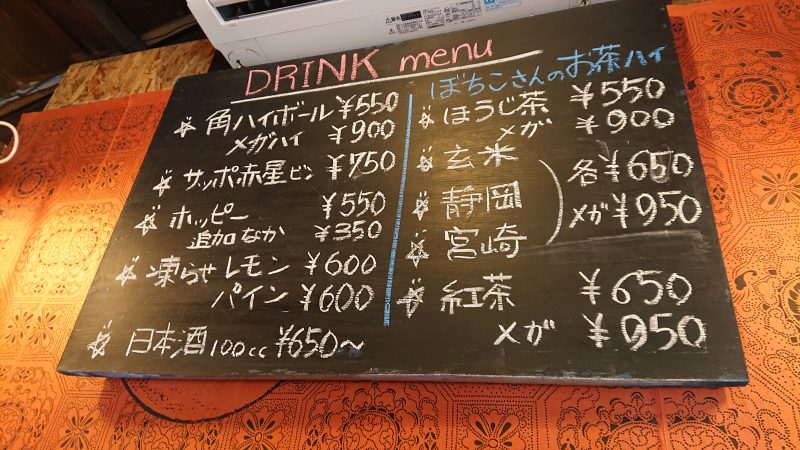 DRINK menu
☆ 角ハイボール ¥550
メガハイ ¥900
☆ サッポロ赤星ビン ¥750
☆ ホッピー ¥550
追加なか ¥350
☆ 凍らせレモン ¥600
パイン ¥600
☆ 日本酒100cc ¥650〜
ぼちこさんのお茶ハイ
☆ ほうじ茶 ¥550
メガ ¥900
☆ 玄米
☆ 静岡
☆ 宮崎
各¥650
メガ¥950
☆ 紅茶 ¥650
メガ ¥950